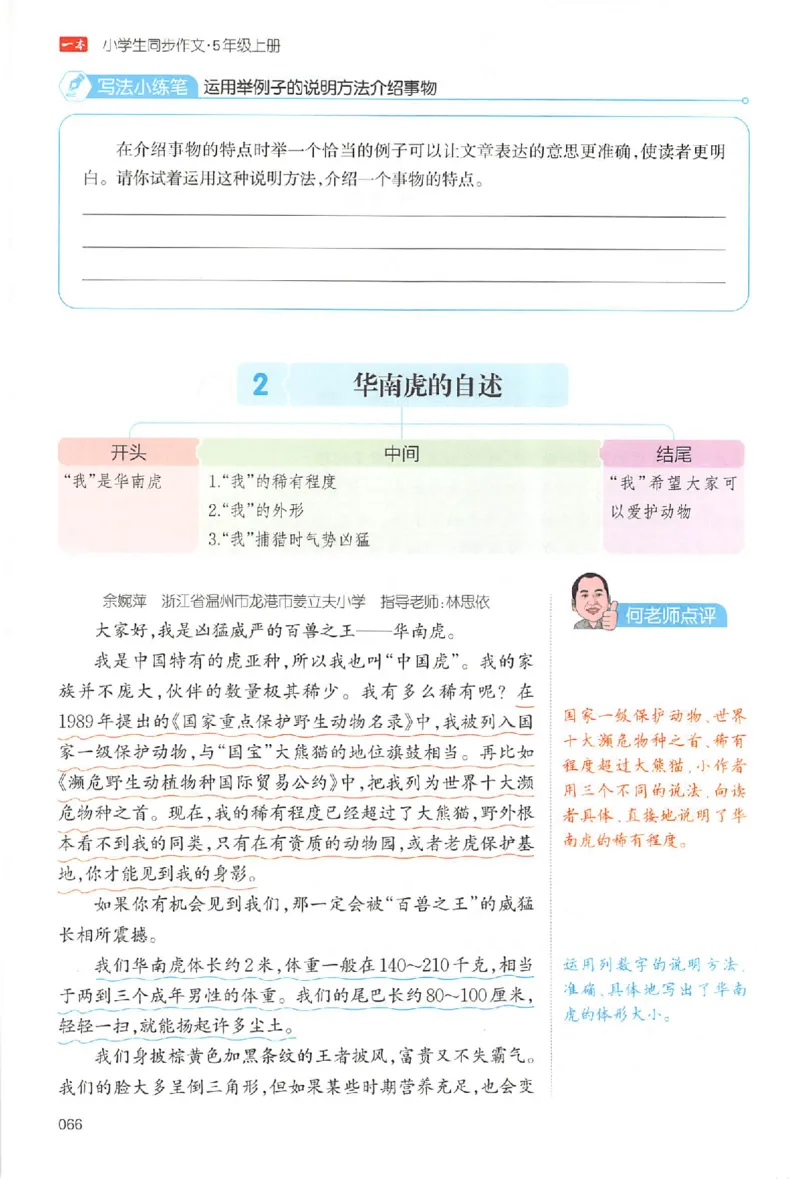 一本 小学生同步作文·5年级上册
写法小练笔 运用举例子的说明方法介绍事物
在介绍事物的特点时举一个恰当的例子可以让文章表达的意思更准确,使读者更明
白。请你试着运用这种说明方法,介绍一个事物的特点。
2 华南虎的自述
开头
“我”是华南虎
中间
1.“我”的稀有程度
2.“我”的外形
3.“我”捕猎时气势凶猛
结尾
“我”希望大家可
以爱护动物
余婉萍 浙江省温州市龙港市姜立夫小学 指导老师:林思依
大家好,我是凶猛威严的百兽之王——华南虎。
我是中国特有的虎亚种,所以我也叫“中国虎”。我的家
族并不庞大,伙伴的数量极其稀少。我有多么稀有呢?在
1989年提出的《国家重点保护野生动物名录》中,我被列入国
家一级保护动物,与“国宝”大熊猫的地位旗鼓相当。再比如
《濒危野生动植物种国际贸易公约》中,把我列为世界十大濒
危物种之首。现在,我的稀有程度已经超过了大熊猫,野外根
本看不到我的同类,只有在有资质的动物园,或者老虎保护基
地,你才能见到我的身影。
如果你有机会见到我们,那一定会被“百兽之王”的威猛
长相所震撼。
我们华南虎体长约2米,体重一般在140~210千克,相当
于两到三个成年男性的体重。我们的尾巴长约80~100厘米,
轻轻一扫,就能扬起许多尘土。
我们身披棕黄色加黑条纹的王者披风,富贵又不失霸气。
我们的脸大多呈倒三角形,但如果某些时期营养充足,也会变
何老师点评
国家一级保护动物、世界
十大濒危物种之首、稀有
程度超过大熊猫,小作者
用三个不同的说法,向读
者具体、直接地说明了华
南虎的稀有程度。
运用列数字的说明方法,
准确、具体地写出了华南
虎的体形大小。
066